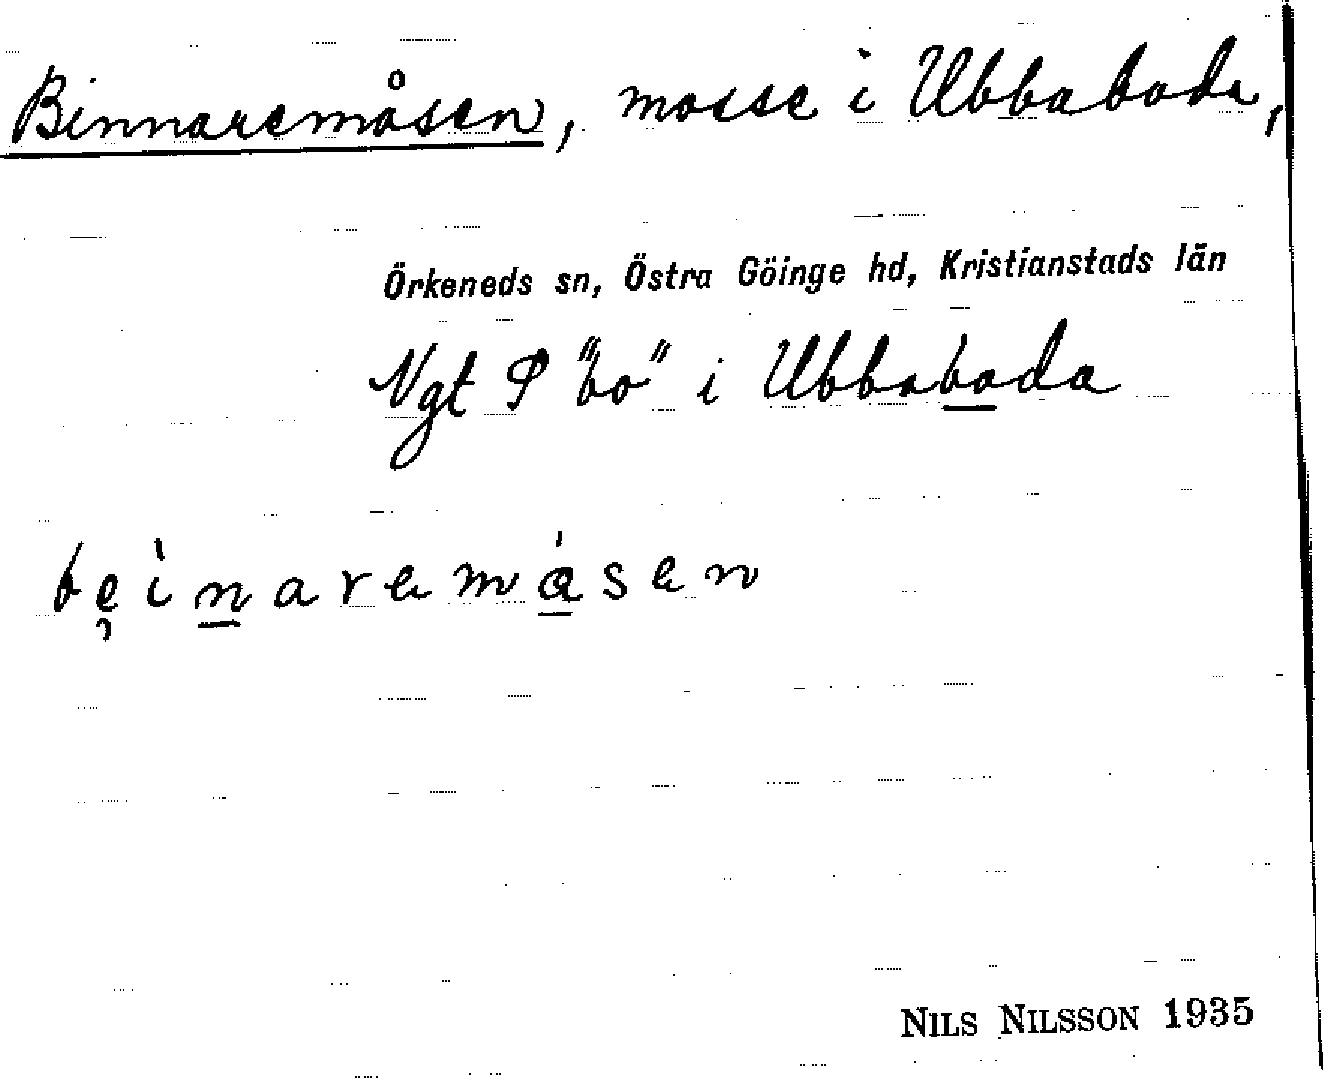 Binnaremåsen, mosse i Ubbaboda,
Örkeneds sn, Östra Göinge hd, Kristianstads län
Vgt P "bo" i Ubbaboda
be̡ìn̲aremá̲sen
NILS NILSSON 1935